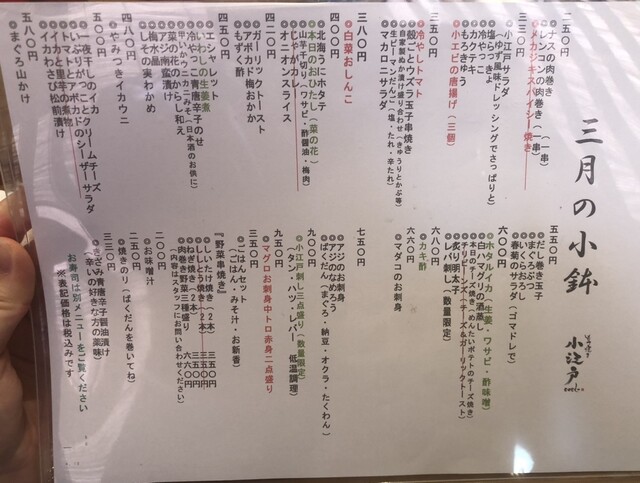 三月の小鉢
小江戸
二五〇円
●ナスの肉巻き（一串）
●メカジキスパイシー焼き（一串）
三三〇円
●小江戸サラダ
（ゆず風味ドレッシングでさっぱりと）
●塩らっきょ
●冷やっこ
●カクテキ
●もろきゅう
●小エビの唐揚げ（三個）
三五〇円
●冷やしトマト
●殻ごとウズラ玉子串焼き
●自家製ぬか漬け盛り合わせ（きゅうりとかぶ等）
●生ピーマンだん（塩・たれ・辛たれ）
●マカロニサラダ
三八〇円
●白菜おしんこ
四〇〇円
●北海つぶにホタテ
●本日のおひたし（菜の花）
●山芋千切り（ワサビ・酢醤油・梅肉）
●おやかカレー
●オニオンスライス
四二〇円
●ガーリックトースト
●アボカド梅おかか
●もずく酢
四五〇円
●エシャレット
●いわしの生姜煮
●冷やっこ青唐辛子のせ
（日本酒のお供に）
●菜の花のからし和え
●アジ南蛮漬け
●梅水晶
●しその実わかめ
四八〇円
●やみつきイカウニ
五〇〇円
●一夜干しのイカ
●いぶりがっこクリームチーズ
●トマトとアボカドのシーザーサラダ
●イカと里芋の煮物
●イカわさび松前漬け
五八〇円
●まぐろ山かけ
五五〇円
●だし巻き玉子
●まぐろぶつ
●いくらおろし
●春菊のサラダ（ゴマドレで）
六〇〇円
●ホタルイカ（生姜・ワサビ・酢味噌）
●白ハマグリの酒蒸し
●本日のチーズ焼き（めんたいポテトのチーズ焼き）
●チリビーンズ（チーズ＆ガーリックトースト）
●炙り明太子
●レバ刺し（数量限定）
六八〇円
●カキ酢
六六〇円
●マダコのお刺身
七五〇円
●アジのお刺身
●アジのなめろう
●ばくだん（まぐろ・納豆・オクラ・たくわん）
九〇〇円
●小江戸刺し三点盛り（数量限定）
（タン・ハツ・レバー 低温調理）
九五〇円
●マグロお刺身中トロ赤身二点盛り
三五〇円
●ごはんセット
（ごはん・みそ汁・お新香）
『野菜串焼き』
●しいたけ焼き（２本）　三五〇円
●ししとう焼き（２本）　三五〇円
●ねぎ焼き（２本）　三五〇円
●肉巻き野菜三種盛り　六六〇円
（内容はスタッフにお問い合わせください）
二〇〇円
●お味噌汁
二五〇円
●焼きのり（ばくだんを巻いてね）
三三〇円
●きざみ青唐辛子醤油漬け
（辛いの好きな方の薬味）
お寿司は別メニューをご覧ください
※表記価格は税込みです。